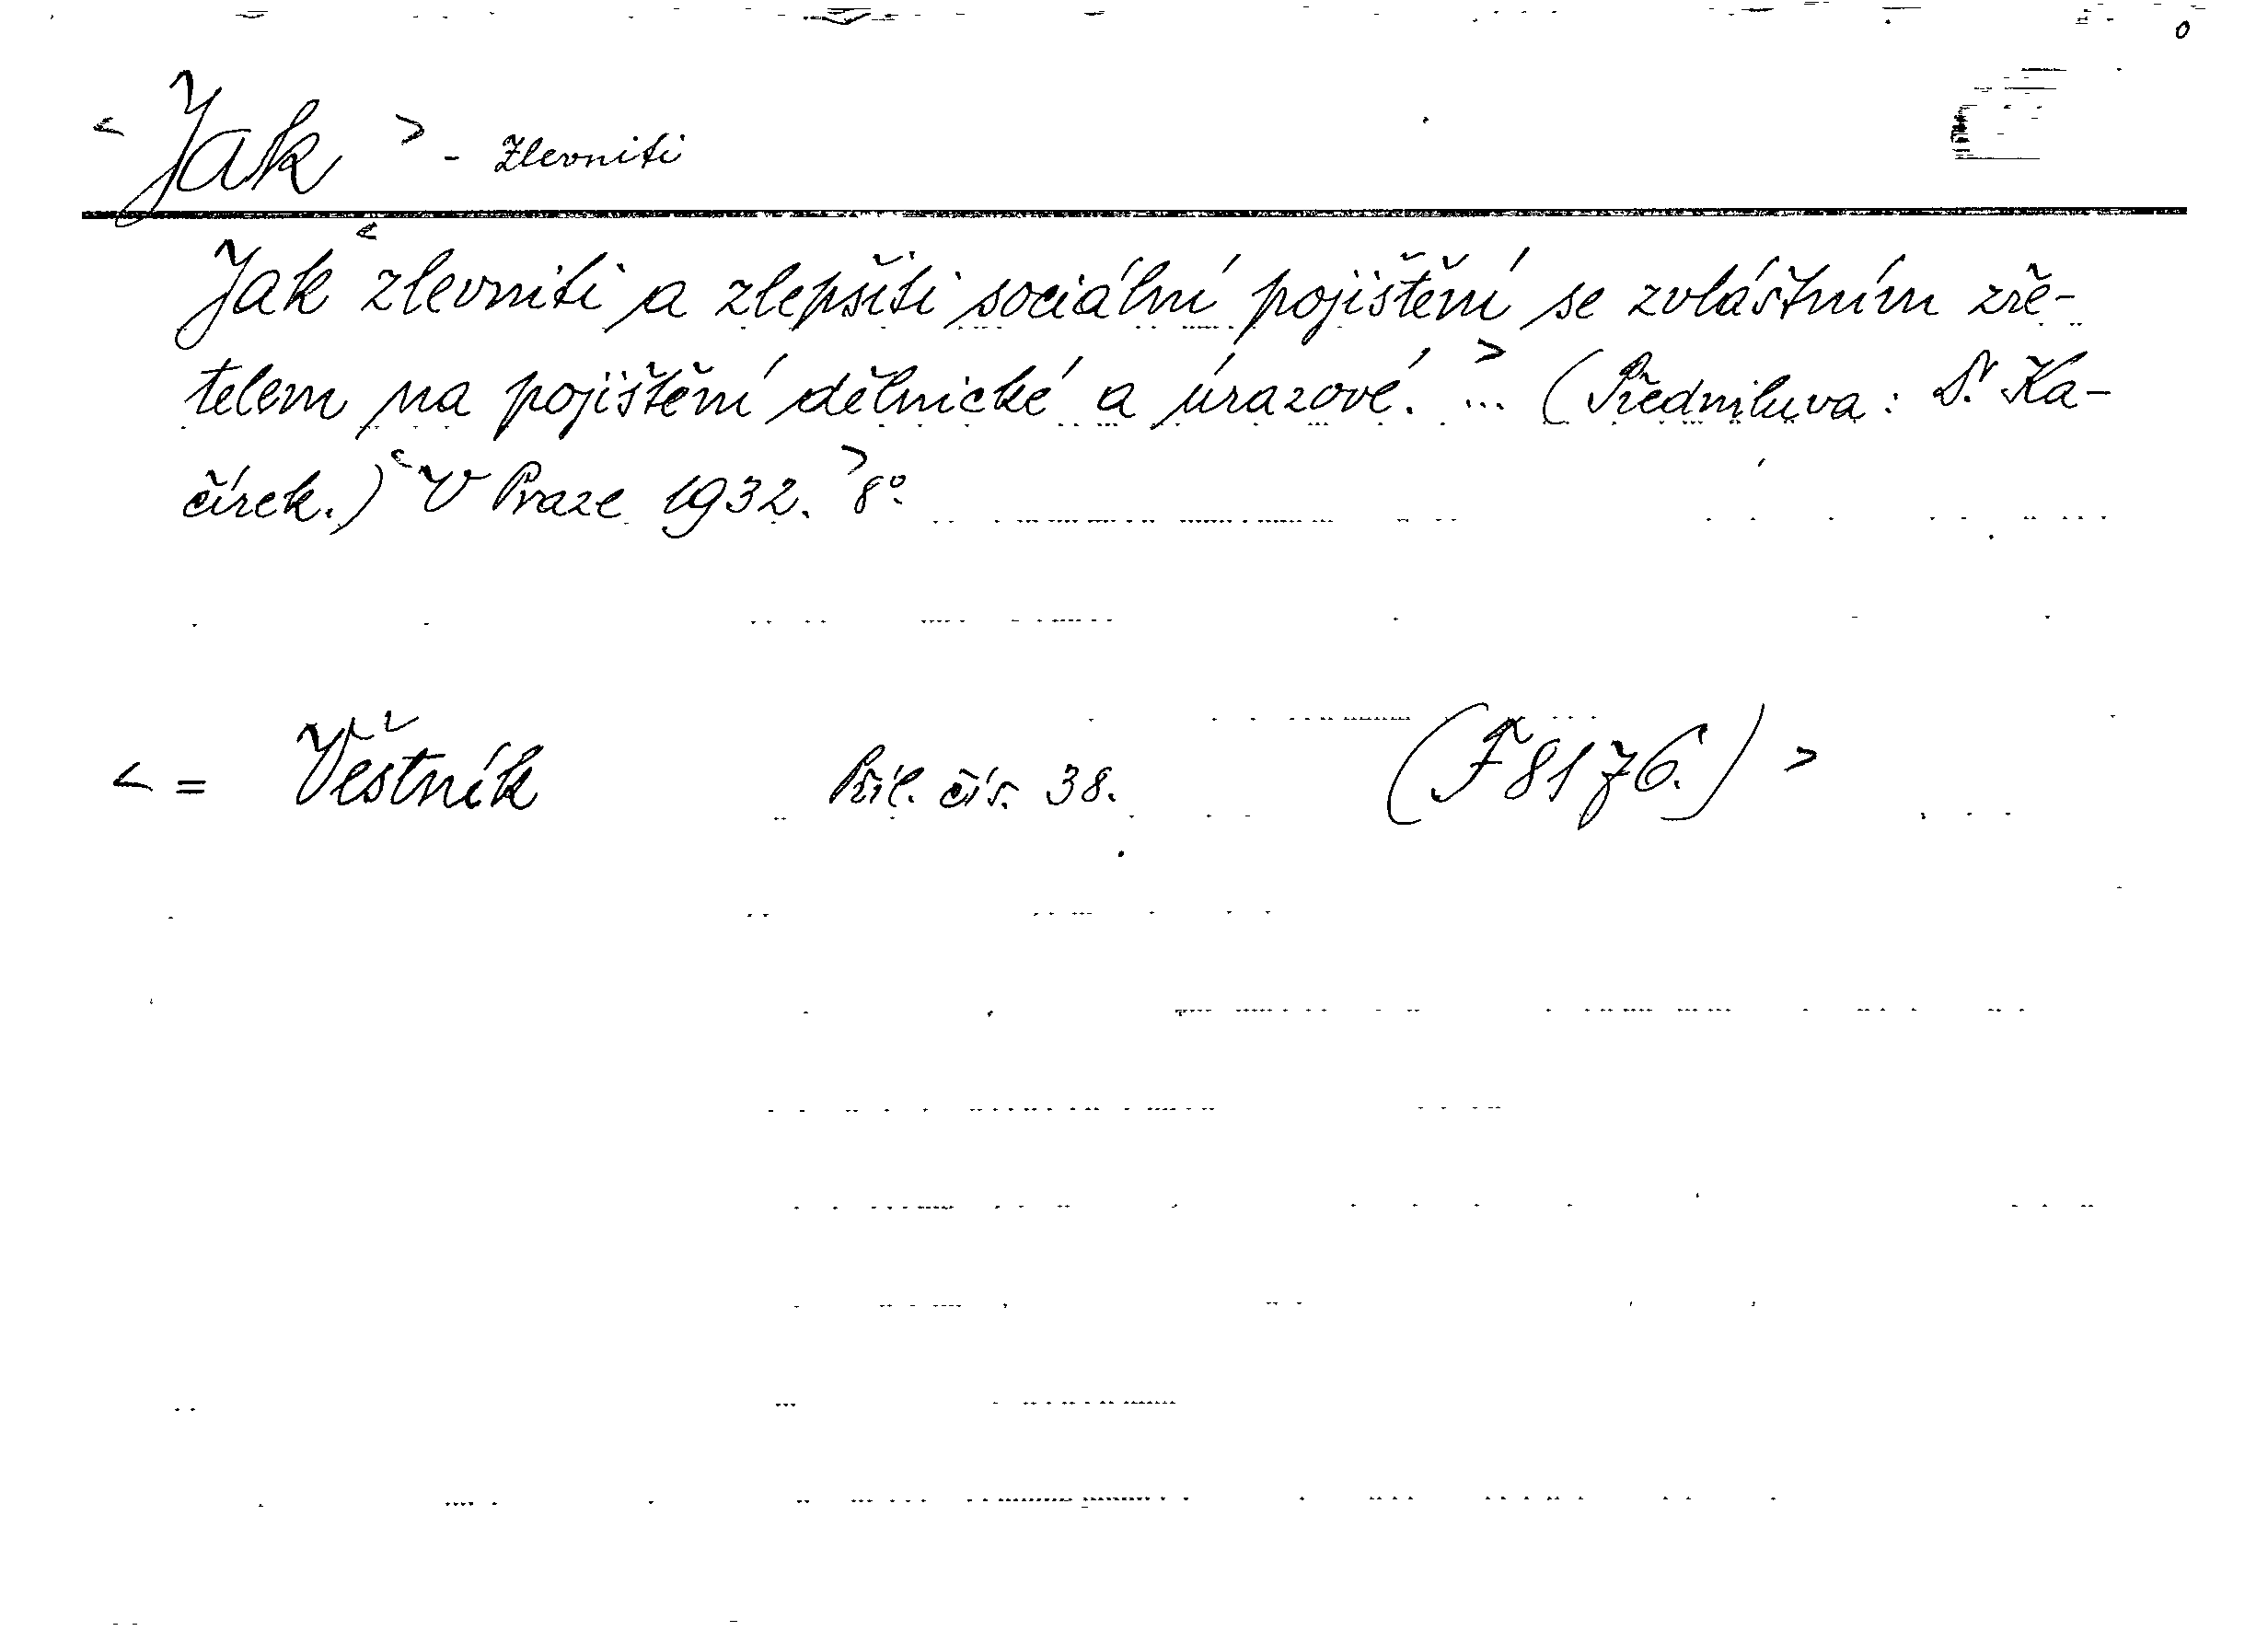 < Jak > - zlevniti
Jak < zlevniti a zlepšiti sociální pojištění se zvláštním zře-
telem na pojištění dělnické a úrazové. > ... (Předmluva: Dr. Ka-
čírek.) < V Praze 1932. > 8°.
< = Věstník Příl. čís. 38. (F 8176.) >